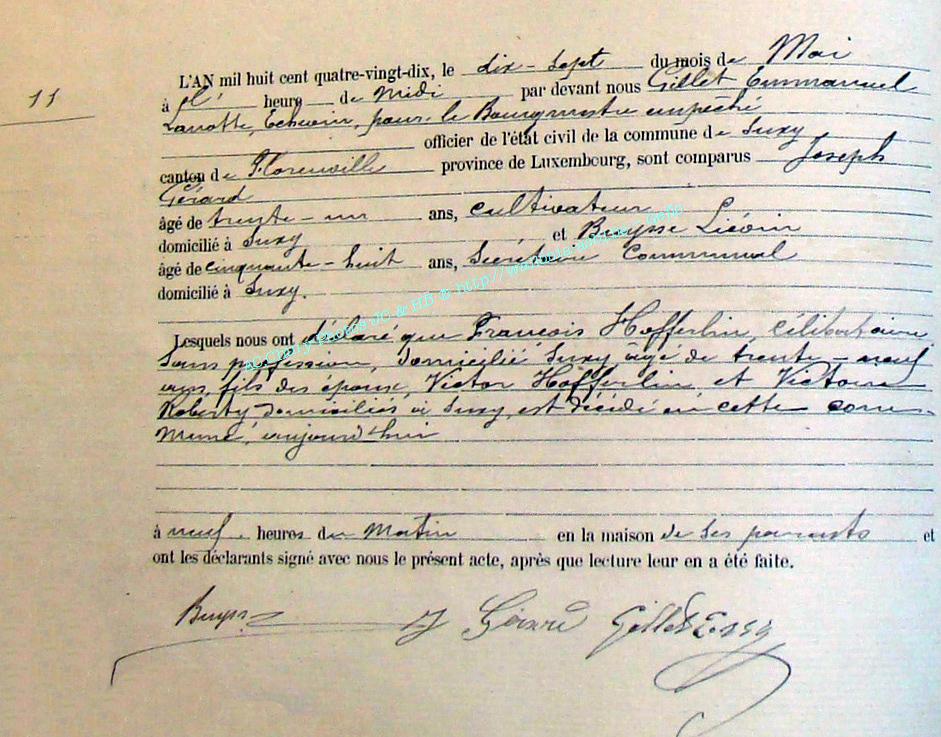 11
L'AN mil huit cent quatre-vingt-dix, le dix-sept du mois de Mai
à heure de Midi par devant nous Gillet Emmanuel
Echevin, pour le Bourgmestre empeché
officier de l'état civil de la commune de Suxy
canton de Florenville province de Luxembourg, sont comparus Joseph
Gérard
âgé de trente-un ans, cultivateur
domicilié à Suxy et Buysse Liévin
âgé de cinquante-huit ans, Secrétaire Communal
domicilié à Suxy.
Lesquels nous ont déclaré que François Hofferlin, célibataire
sans profession, domicilié Suxy âgé de trente-neuf
ans, fils des époux, Victor Hofferlin et Victoire
Roberty domiciliés à Suxy, est décédé en cette com-
mune, aujourd'hui
à neuf heures du Matin en la maison de ses parents et
ont les déclarants signé avec nous le présent acte, après que lecture leur en a été faite.
Buysse J Gérard Gillet